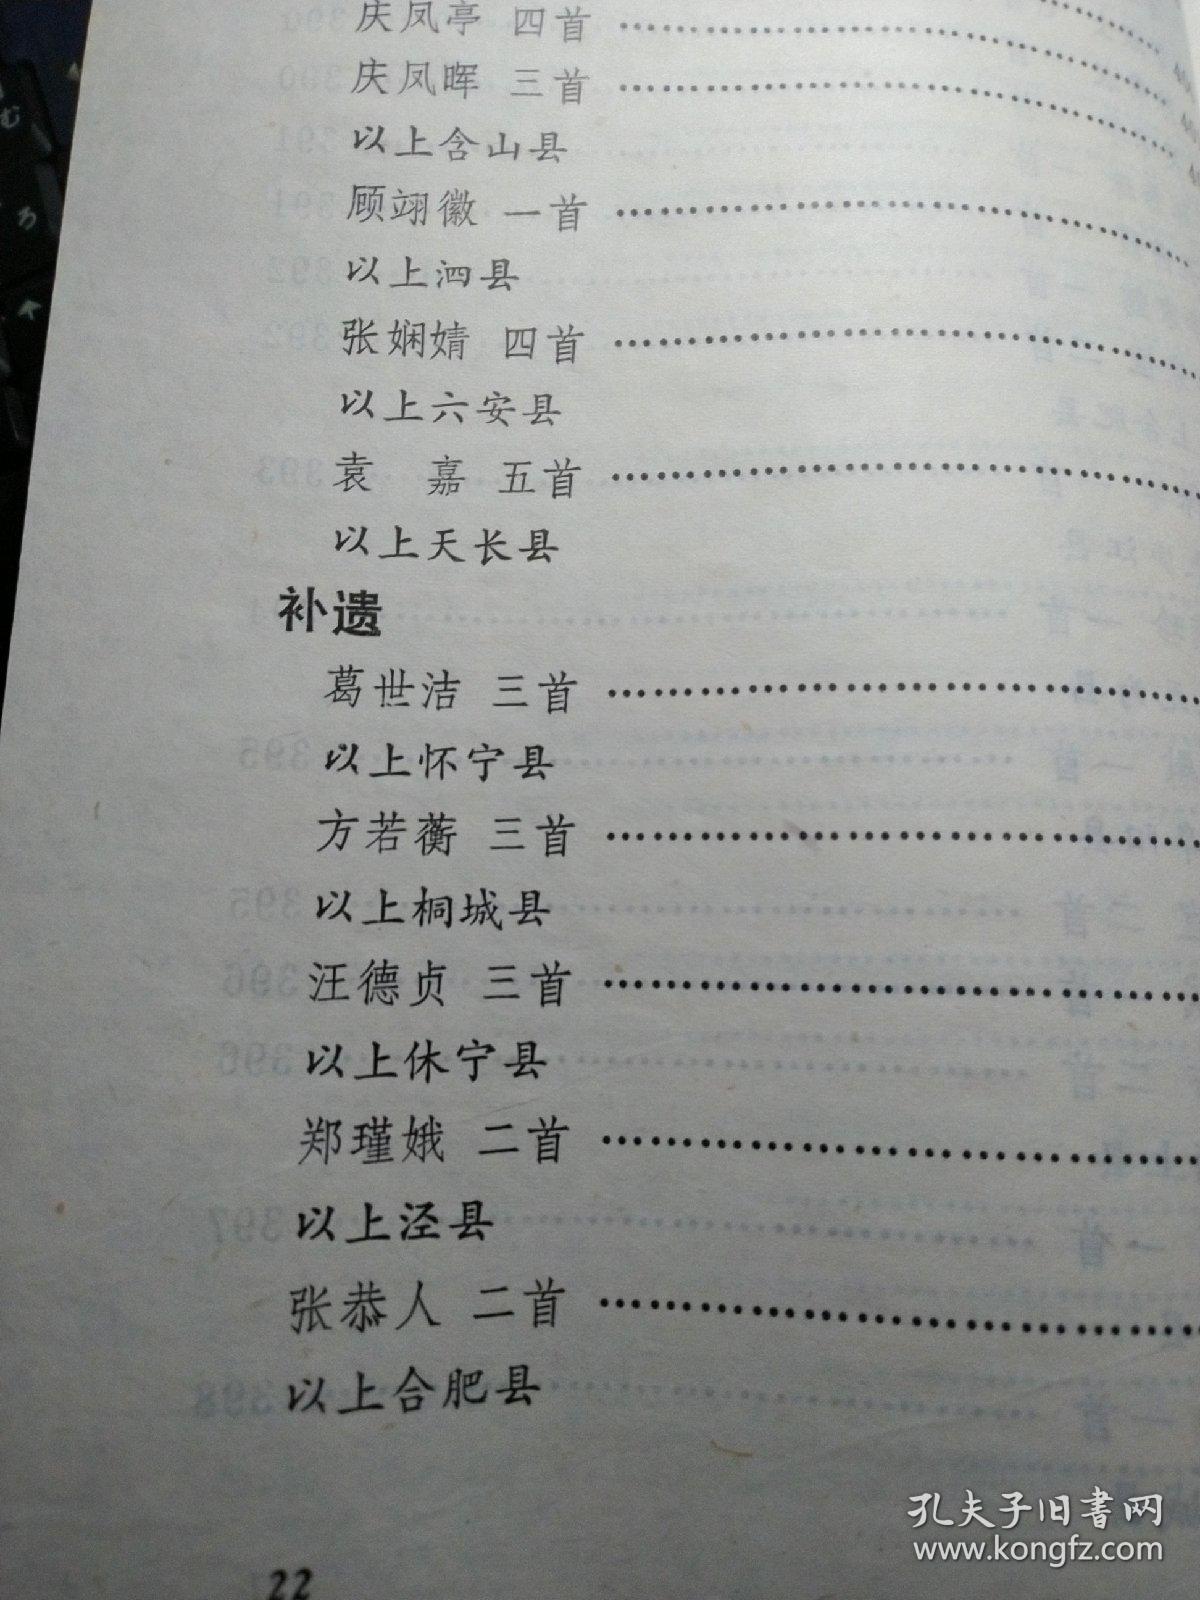 庆凤亭 四首
庆凤晖 三首
以上含山县
顾翊徽 一首
以上泗县
张娴婧 四首
以上六安县
袁 嘉 五首
以上天长县
补遗
葛世洁 三首
以上怀宁县
方若蘅 三首
以上桐城县
汪德贞 三首
以上休宁县
郑瑾娥 二首
以上泾县
张恭人 二首
以上合肥县
22
孔夫子旧书网
www.kongfz.com